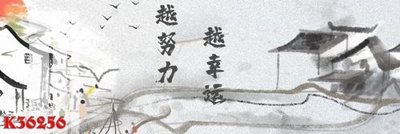 越努力
越幸运
K36256